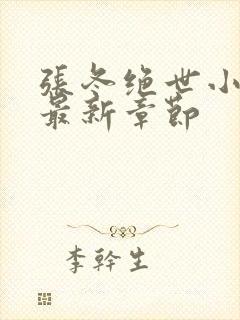 張冬绝世小
最新章節
李幹生